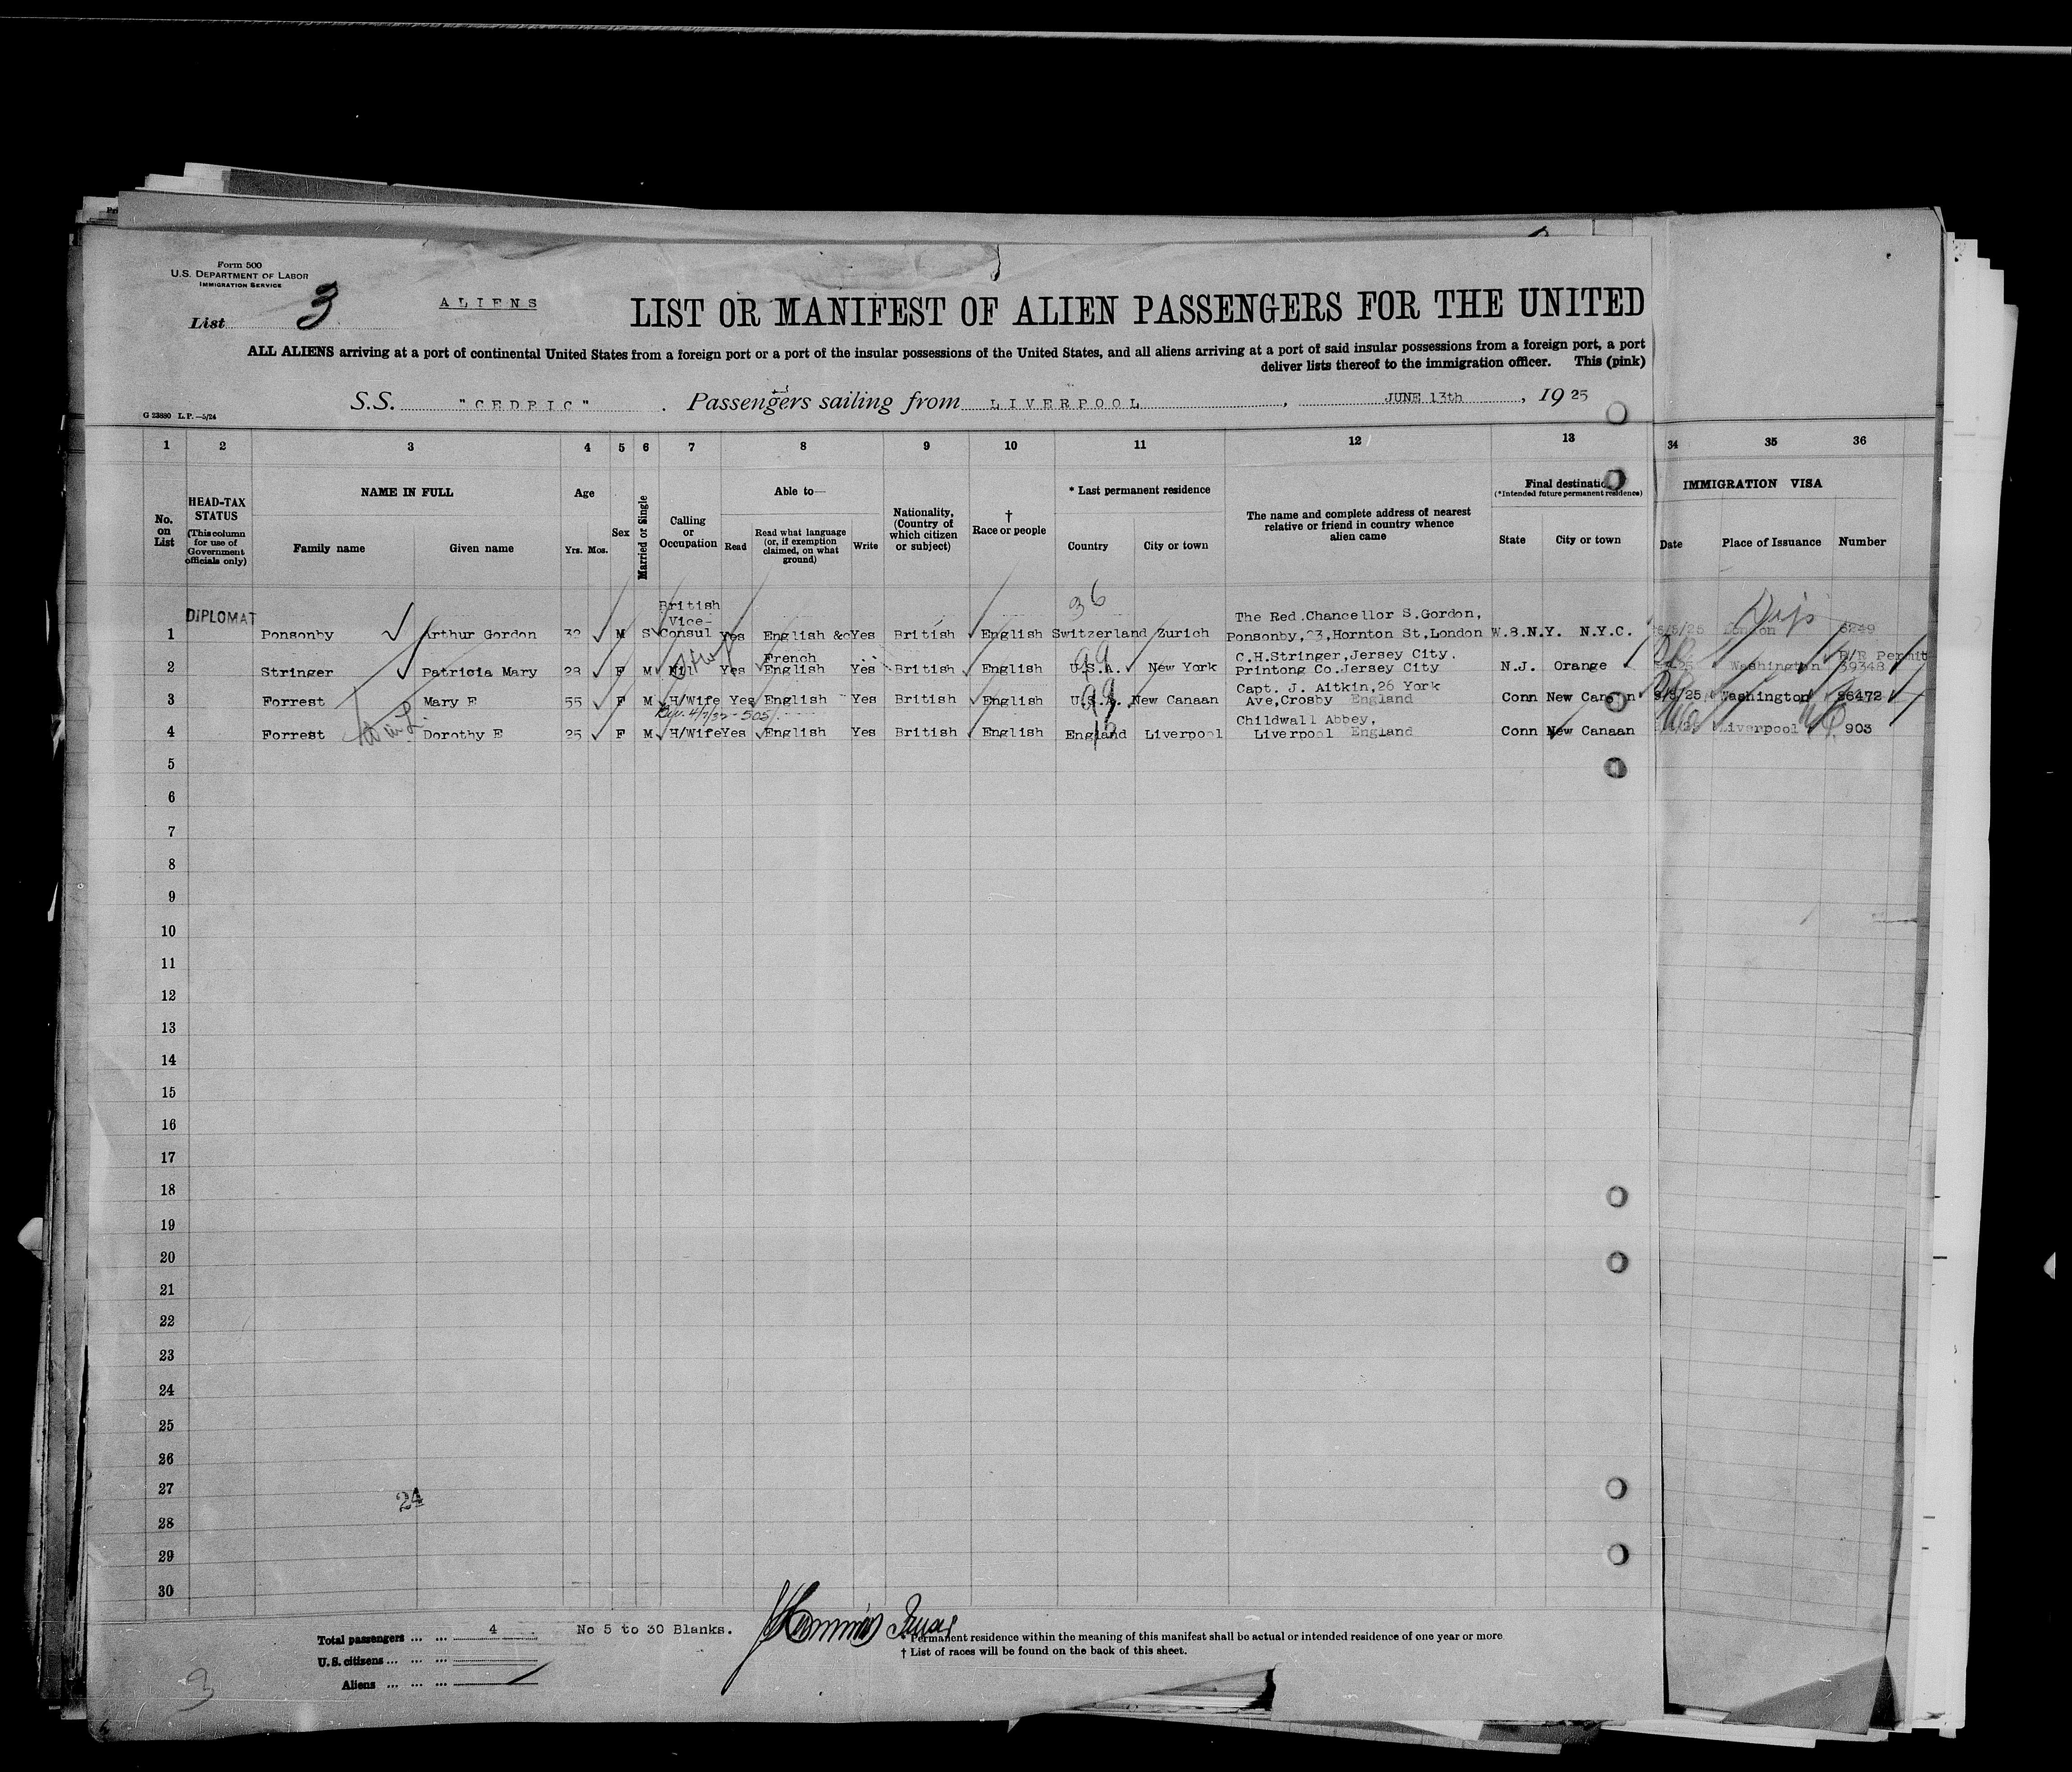 Form 500
U.S. DEPARTMENT OF LABOR
IMMIGRATION SERVICE
List 3
ALIENS
LIST OR MANIFEST OF ALIEN PASSENGERS FOR THE UNITED
ALL ALIENS arriving at a port of continental United States from a foreign port or a port of the insular possessions of the United States, and all aliens arriving at a port of said insular possessions from a foreign port, a port
deliver lists thereof to the immigration officer. This (pink)
S.S. "CEDRIC". Passengers sailing from LIVERPOOL, JUNE 13th, 1925
G 23880 L.P.—5/24
1 2 3 4 5 6 7 8 9 10 11 12 13 34 35 36
No. on List
HEAD-TAX STATUS
(This column for use of Government officials only)
NAME IN FULL
Family name Given name
Age
Yrs. Mos.
Sex
Married or Single
Calling or Occupation
Able to—
Read
Read what language (or, if exemption claimed, on what ground)
Write
Nationality, (Country of which citizen or subject)
† Race or people
* Last permanent residence
Country City or town
The name and complete address of nearest relative or friend in country whence alien came
Final destination
(*Intended future permanent residence)
State City or town
IMMIGRATION VISA
Date Place of Issuance Number
36
DIPLOMAT
1 Ponsonby Arthur Gordon 32 M S British Vice-Consul Yes English & French Yes British English Switzerland Zurich The Red.Chancellor S.Gordon, Ponsonby,23,Hornton St,London W.8. N.Y. N.Y.C. London Dip 6249
2 Stringer Patricia Mary 28 F M Nil Yes English Yes British English U.S.A. New York C.H.Stringer,Jersey City. Printong Co.Jersey City N.J. Orange Washington R/R Permit 39348
3 Forrest Mary E 55 F M H/Wife Yes English Yes British English U.S.A. New Canaan Capt. J. Aitkin,26 York Ave,Crosby England Conn New Canaan Washington 86472
4 Forrest Dorothy E 25 F M H/Wife Yes English Yes British English England Liverpool Childwall Abbey, Liverpool England Conn New Canaan Liverpool 903
5
6
7
8
9
10
11
12
13
14
15
16
17
18
19
20
21
22
23
24
25
26
27
24
28
29
30
Total passengers ... ... 4 No 5 to 30 Blanks.
U.S. citizens ... ... ...
Aliens ... ... ...
* Permanent residence within the meaning of this manifest shall be actual or intended residence of one year or more
† List of races will be found on the back of this sheet.
3